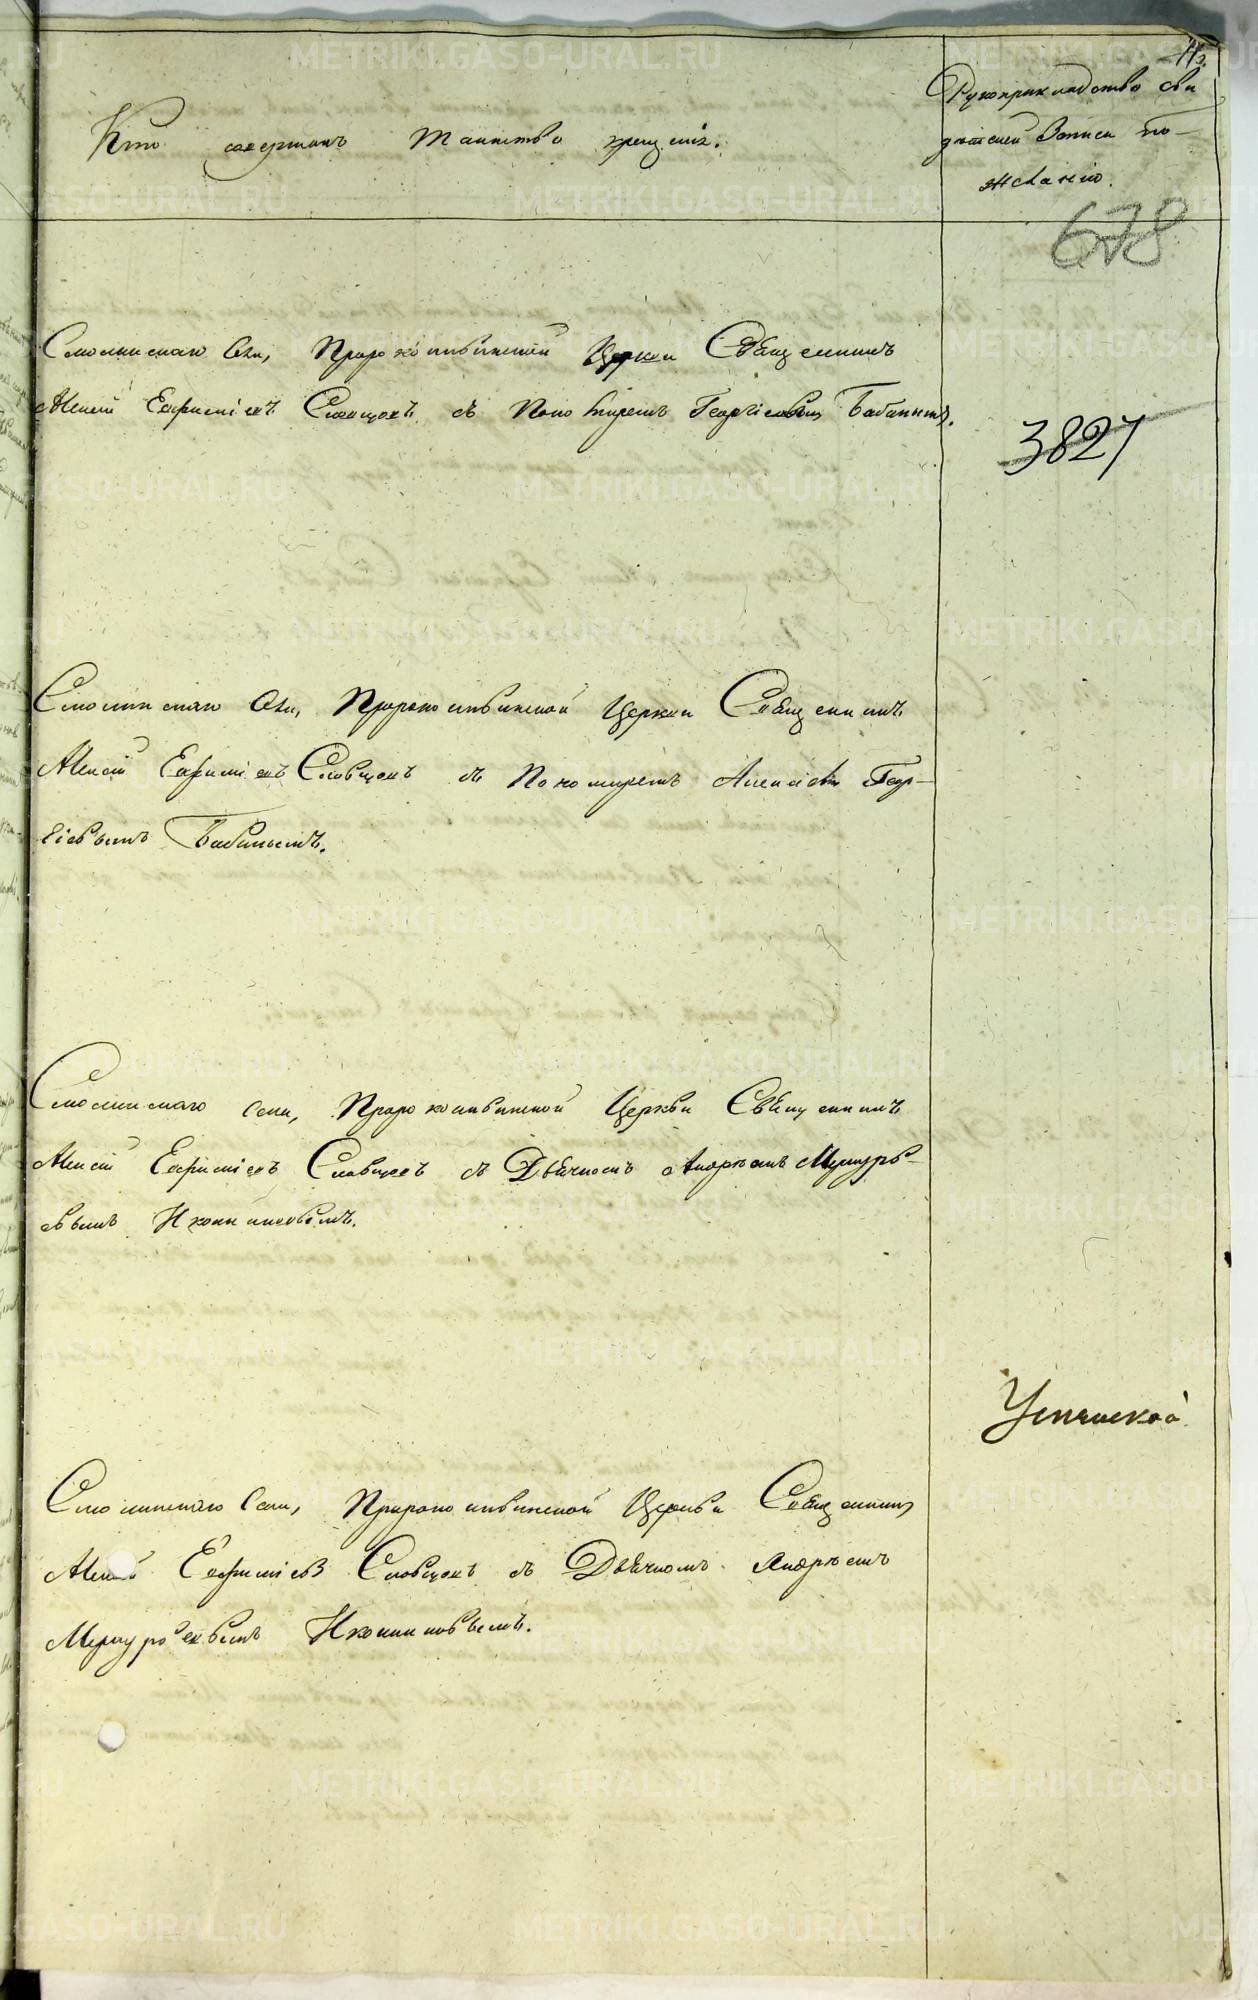 Кто совершалъ таинство крещенія.
Рукоприкладство сви
дѣтелей записи по
желанію.
678
Смолинскаго села, Пророкоильинской Церкви Священникъ
Алексѣй Ефиміевъ Словцовъ съ Пономаремъ Георгіевымъ Бабинымъ.
3827
Смолинскаго села, Пророкоильинской Церкви Священникъ
Алексѣй Ефиміевъ Словцовъ съ Пономаремъ Геор-
гіевымъ Бабинымъ.
Смолинскаго села, Пророкоильинской Церкви Священникъ
Алексѣй Ефиміевъ Словцовъ съ Дьячкомъ Андреемъ Меркурь-
евымъ Иконниковымъ.
Смолинскаго села, Пророкоильинской Церкви Священникъ
Алексѣй Ефиміевъ Словцовъ съ Дьячкомъ Андреемъ
Меркурьевымъ Иконниковымъ.
METRIKI.GASO-URAL.RU